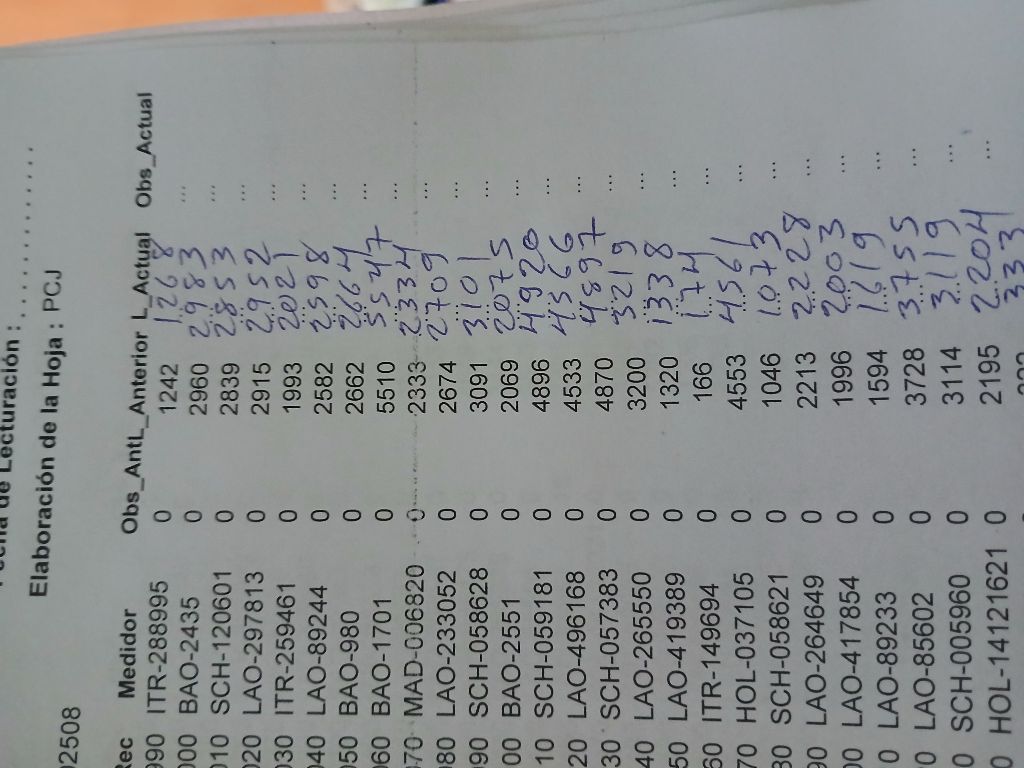 02508
de Lecturación : . . . . . . . . . . . . .
Elaboración de la Hoja : PCJ
Rec Medidor Obs_AntL_Anterior L_Actual Obs_Actual
990 ITR-288995 0 1242 1268
000 BAO-2435 0 2960 2983 ...
010 SCH-120601 0 2839 2853 ...
020 LAO-297813 0 2915 2952 ...
030 ITR-259461 0 1993 2021 ...
040 LAO-89244 0 2582 2598 ...
050 BAO-980 0 2662 2664 ...
060 BAO-1701 0 5510 5547 ...
070 MAD-006820 0 2333 2334 ...
080 LAO-233052 0 2674 2709 ...
090 SCH-058628 0 3091 3101 ...
00 BAO-2551 0 2069 2075 ...
10 SCH-059181 0 4896 4920 ...
20 LAO-496168 0 4533 4566 ...
30 SCH-057383 0 4870 4897 ...
40 LAO-265550 0 3200 3219 ...
50 LAO-419389 0 1320 1338 ...
60 ITR-149694 0 166 174 ...
70 HOL-037105 0 4553 4561 ...
80 SCH-058621 0 1046 1073 ...
90 LAO-264649 0 2213 2228 ...
00 LAO-417854 0 1996 2003 ...
0 LAO-89233 0 1594 1619 ...
0 LAO-85602 0 3728 3755 ...
0 SCH-005960 0 3114 3119 ...
0 HOL-14121621 0 2195 2204 ...
333